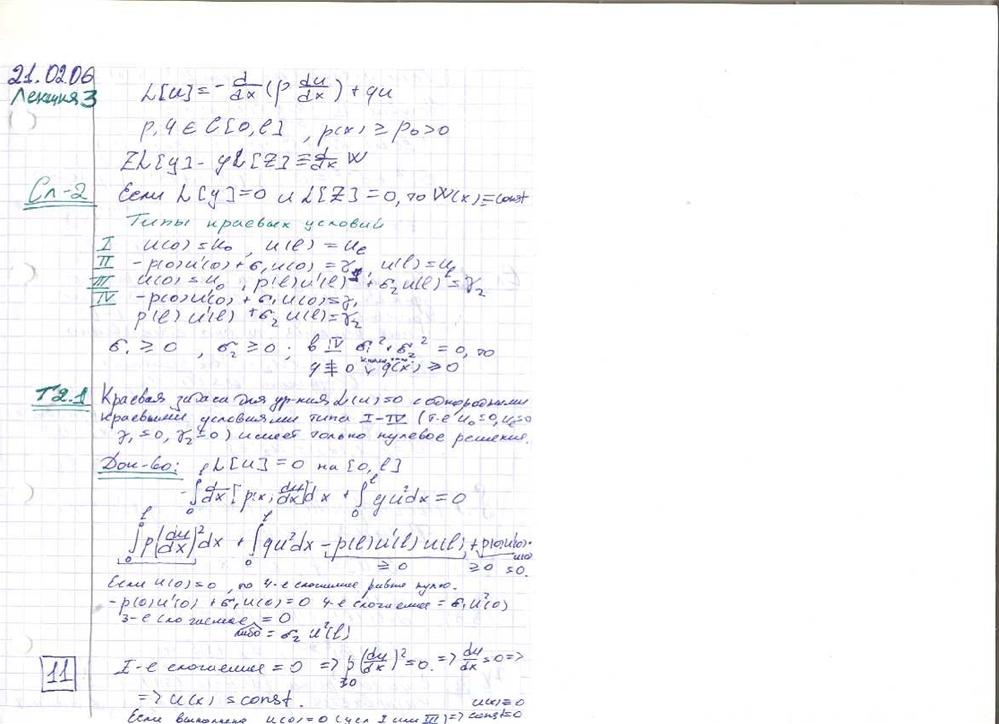 21.02.06
Лекция 3
L[u] = - d/dx (p du/dx) + qu
p, q ∈ C[0, l] , p(x) ≥ p₀ > 0
ZL[y] - yL[Z] ≡ d/dx W
Сл-2 Если L[y] = 0 и L[Z] = 0, то W(x) ≡ const
Типы краевых условий
I u(0) = u₀ , u(l) = u_l
II -p(0)u'(0) + σ₁u(0) = γ₁ , u(l) = u_l
III u(0) = u₀ , p(l)u'(l) + σ₂u(l) = γ₂
IV -p(0)u'(0) + σ₁u(0) = γ₁
p(l)u'(l) + σ₂u(l) = γ₂
σ₁ ≥ 0 , σ₂ ≥ 0 ; в IV σ₁² + σ₂² = 0, то
q ≢ 0 q(x) ≥ 0
Т2.1 Краевая задача для ур-ния L(u) = 0 с однородными
краевыми условиями типа I-IV (т.е u₀ = 0, u_l = 0
γ₁ = 0, γ₂ = 0) имеет только нулевое решение.
Док-во: L[u] = 0 на [0, l]
-∫₀ˡ d/dx [p(x) du/dx] dx + ∫₀ˡ qu²dx = 0
∫₀ˡ p(du/dx)² dx + ∫₀ˡ qu²dx - p(l)u'(l)u(l) + p(0)u'(0)·u(0)
≥ 0 ≥ 0 = 0.
Если u(0) = 0, то 4-е слогаемое равно нулю.
-p(0)u'(0) + σ₁u(0) = 0 4-е слогаемое = σ₁u²(0)
3-е слогаемое = 0
либо = σ₂u²(l)
I-е слогаемое = 0 => p(du/dx)² = 0. => du/dx = 0 =>
≠0
=> u(x) = const. u(x) ≡ 0
11
Если выполнено u(0) = 0 (усл I или III) => const = 0